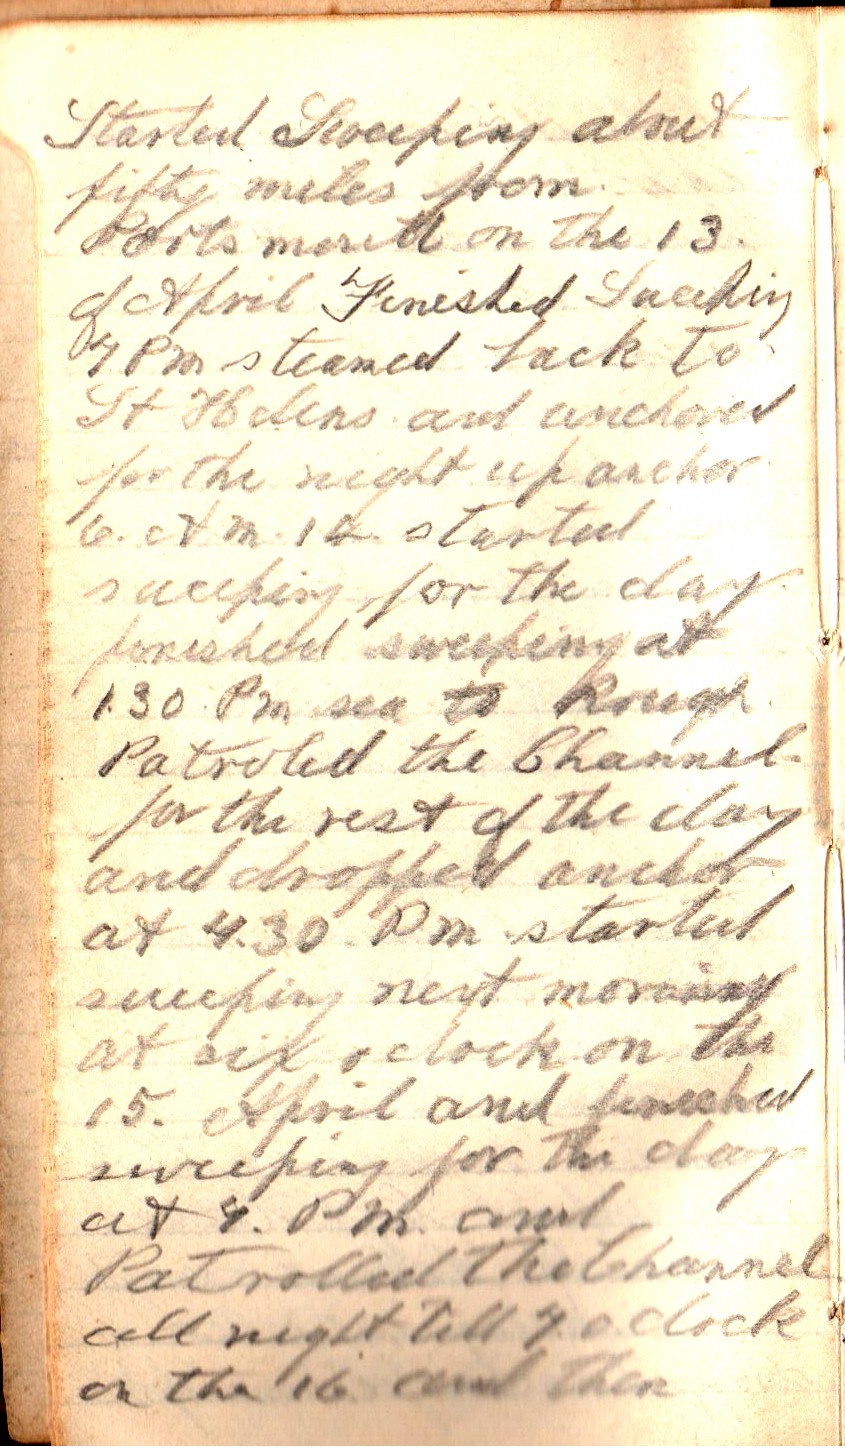 Started Sweeping about
fifty miles from
Portsmouth on the 13.
of April Finished Sweeping
7 PM steamed back to
St Helens and anchored
for the night up anchor
6. AM. 14 started
sweeping for the day
finished sweeping at
1.30 PM sea to Rough
Patroled the Channel
for the rest of the day
and dropped anchor
at 4.30 PM started
sweeping next morning
at six o clock on the
15. April and finished
sweeping for the day
at 7. PM. and
Patrolled the Channel
all night till 7 o clock
on the 16 and then